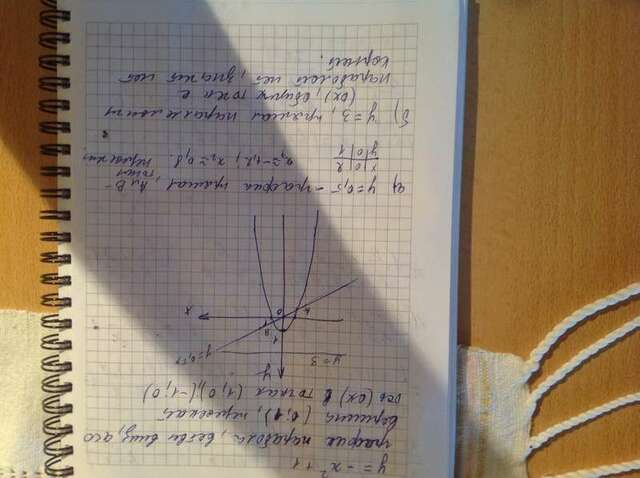 y = -x² + 1
график парабола, ветви вниз, a<0
вершина (0,1), пересекает
ось (ox) в точках (1;0),(-1;0)
y
y = 3
1
y=0,5x
B
A
0
1
x
а) y=0,5 - график прямая, A и B -
точки
x | 0 | 2
y | 0 | 1
x₁≈-1,2; x₂≈0,8.
б) y=3, прямая параллельна
(ox), общих точек с
параболой нет, значит нет
корней.